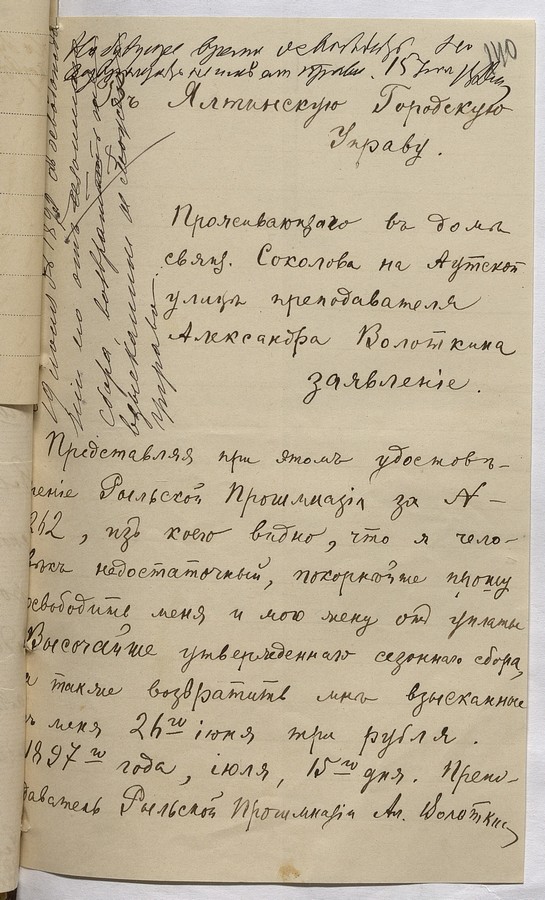 На будущее время освободить, но
140
15 Июля
Въ Ялтинскую Городскую
Управу.
Проживающаго въ домѣ
свящ. Соколова на Аутской
улицѣ преподавателя
Александра Волоткина
заявленіе.
19 июля 1897
сбора, возвратить
взысканныя
управа
Представляя при этомъ удостовѣ-
реніе Рыльской Прогимназіи за N-
262, изъ коего видно, что я чело-
вѣкъ недостаточный, покорнѣйше прошу
освободить меня и мою жену отъ уплаты
Высочайше утвержденнаго сезоннаго сбора,
а также возвратить мнѣ взысканные
съ меня 26го іюня три рубля.
1897го года, іюля, 15го дня. Препо-
даватель Рыльской Прогимназіи Ал. Волоткин